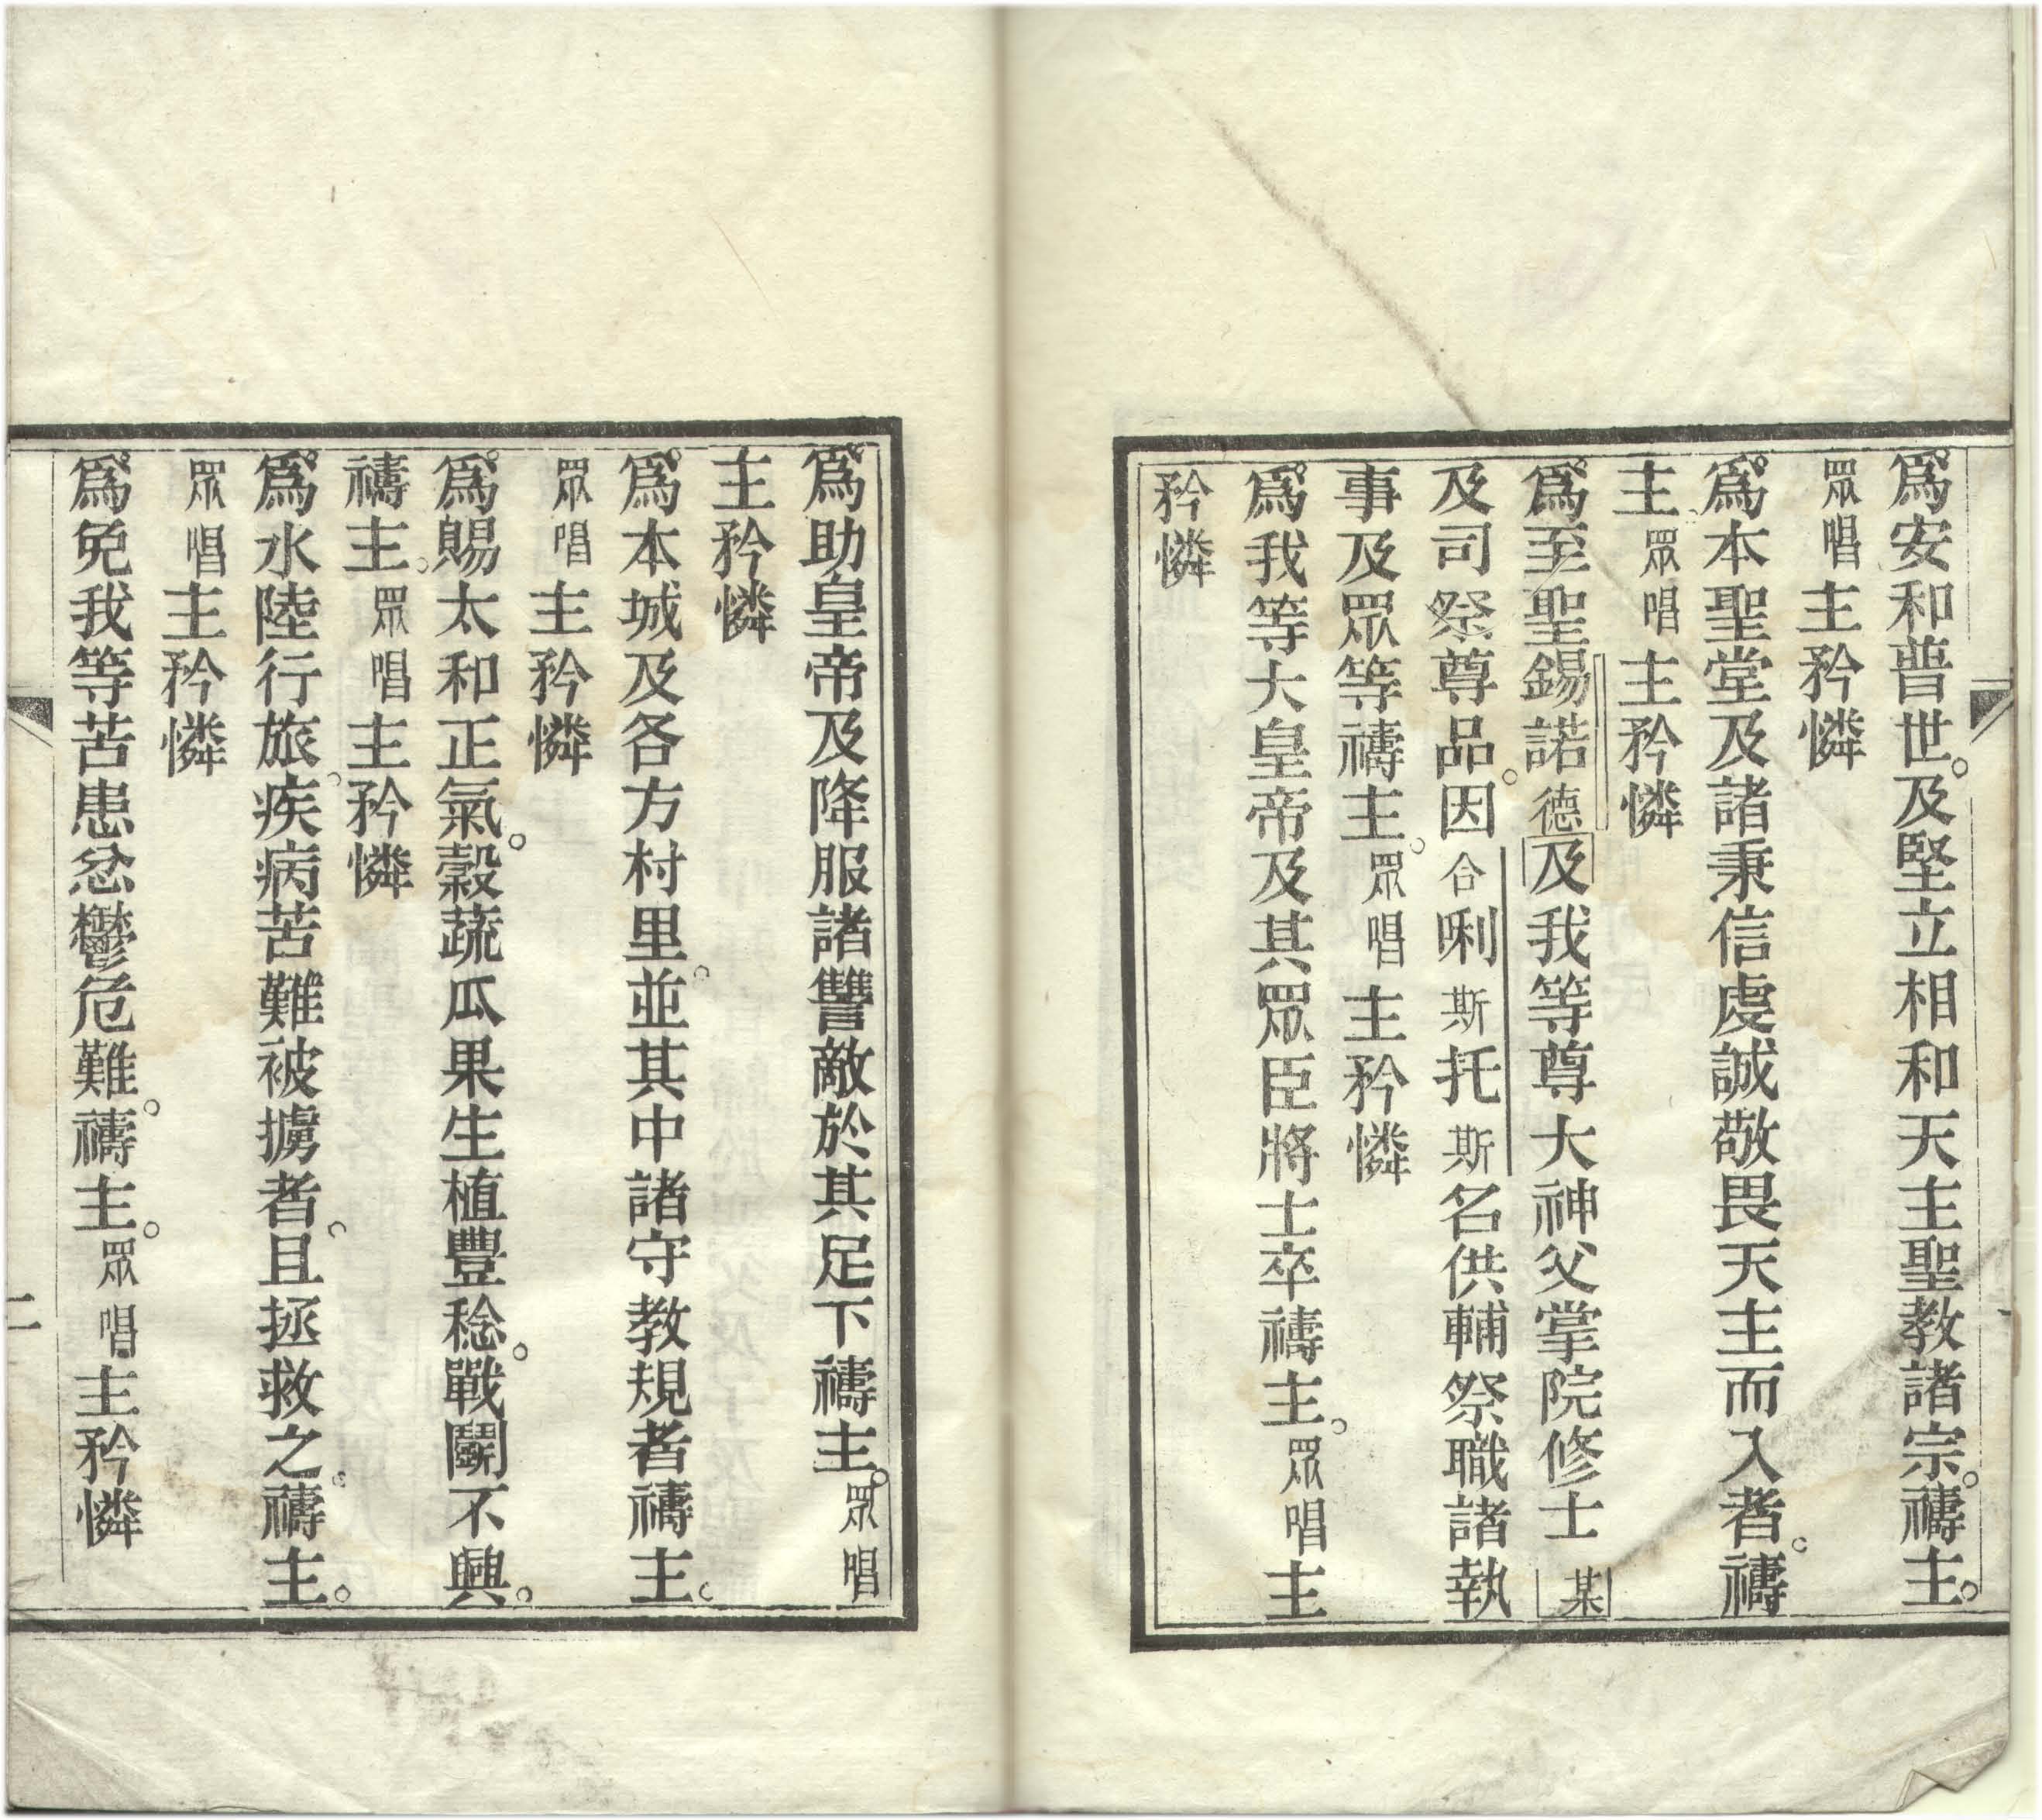 爲安和普世。及堅立相和天主聖教諸宗。禱主。
眾唱主矜憐
爲本聖堂及諸秉信虔誠敬畏天主而入者。禱
主。眾唱主矜憐
爲至聖錫諾德及我等尊大神父掌院修士某
及司祭尊品。因合唎斯托斯名供輔祭職諸執
事及眾等禱主。眾唱主矜憐
爲我等大皇帝及其眾臣將士卒禱主。眾唱主
矜憐
爲助皇帝及降服諸讐敵於其足下禱主。眾唱
主矜憐
爲本城及各方村里。並其中諸守教規者禱主。
眾唱主矜憐
爲賜太和正氣。穀蔬瓜果生植豐稔。戰鬭不興。
禱主。眾唱主矜憐
爲水陸行旅。疾病苦難被擄者。且拯救之。禱主。
眾唱主矜憐
爲免我等苦患忿鬱危難。禱主。眾唱主矜憐
二